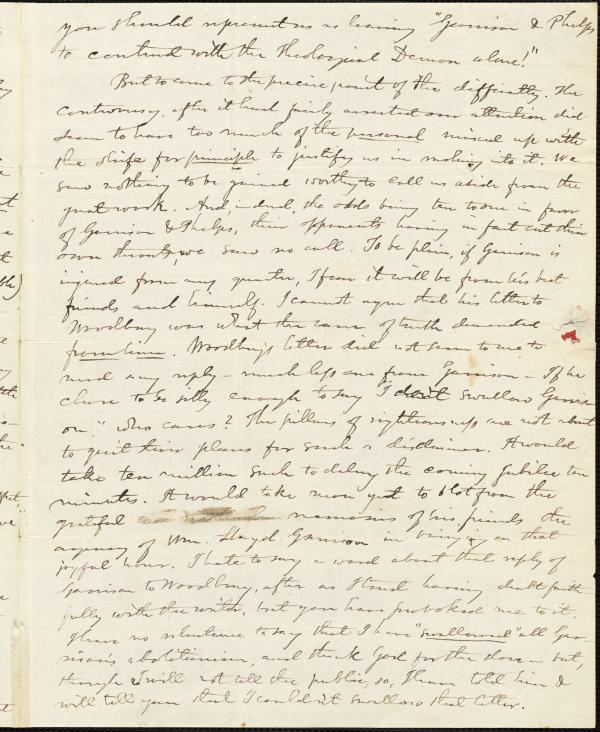 you should represent us as leaving "Garrison & Phelps
to contend with the Theological Demon alone!"
But to come to the precise point of the difficulty. The
controversy, after it had fairly arrested our attention did
seem to have too much of the personal mixed up with
the strife for principle to justify us in making into it. We
saw nothing to be gained worthy to call us aside from the
great work. And, indeed, the odds being ten to one in favor
of Garrison & Phelps, their opponents having in fact cut their
own throats, we saw no call. To be plain, if Garrison is
injured from any quarter, I fear it will be from his best
friends and himself. I cannot agree that his letter to
Woodbury was what the cause of truth demanded
from him. Woodbury's letter did not seem to me to
need any reply – much less one from Garrison – If he
chose to be silly enough to say "I don't swallow Garri
on." who cares? The pillars of righteousness are not about
to quit their places for such a disclaimer. It would
take ten million such to delay the coming Jubilee ten
minutes. It would take more yet to blot from the
grateful memories of his friends the
agency of Wm. Lloyd Garrison in bringing on that
joyful hour. I hate to say a word about that reply of
Garrison to Woodbury, after as I trust having dealt faith-
fully with the writer, but you have provoked me to it.
I have no reluctance to say that I have "swallowed" all Gar-
rison's abolitionism, and thank God for the dose – but,
though I will not tell the public so, I have told him &
will tell you that I couldn't swallow that letter.